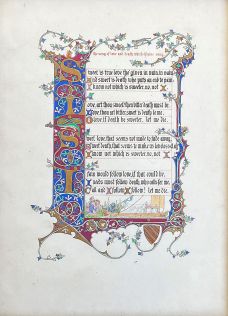 The song of love and death, which Elaine sang
Sweet is true love tho' given in vain, in vain
And sweet is death who puts an end to pain
I know not which is sweeter, no, not I
Love, art thou sweet, then bitter death must be
Love, thou art bitter, sweet is death to me
O Love, if death be sweeter, let me die.
Sweet love, that seems not made to fade away,
Sweet death, that seems to make us loveless clay
I know not which is sweeter, no, not I
I fain would follow love, if that could be,
I needs must follow death, who calls for me
Call and I follow I follow! let me die.